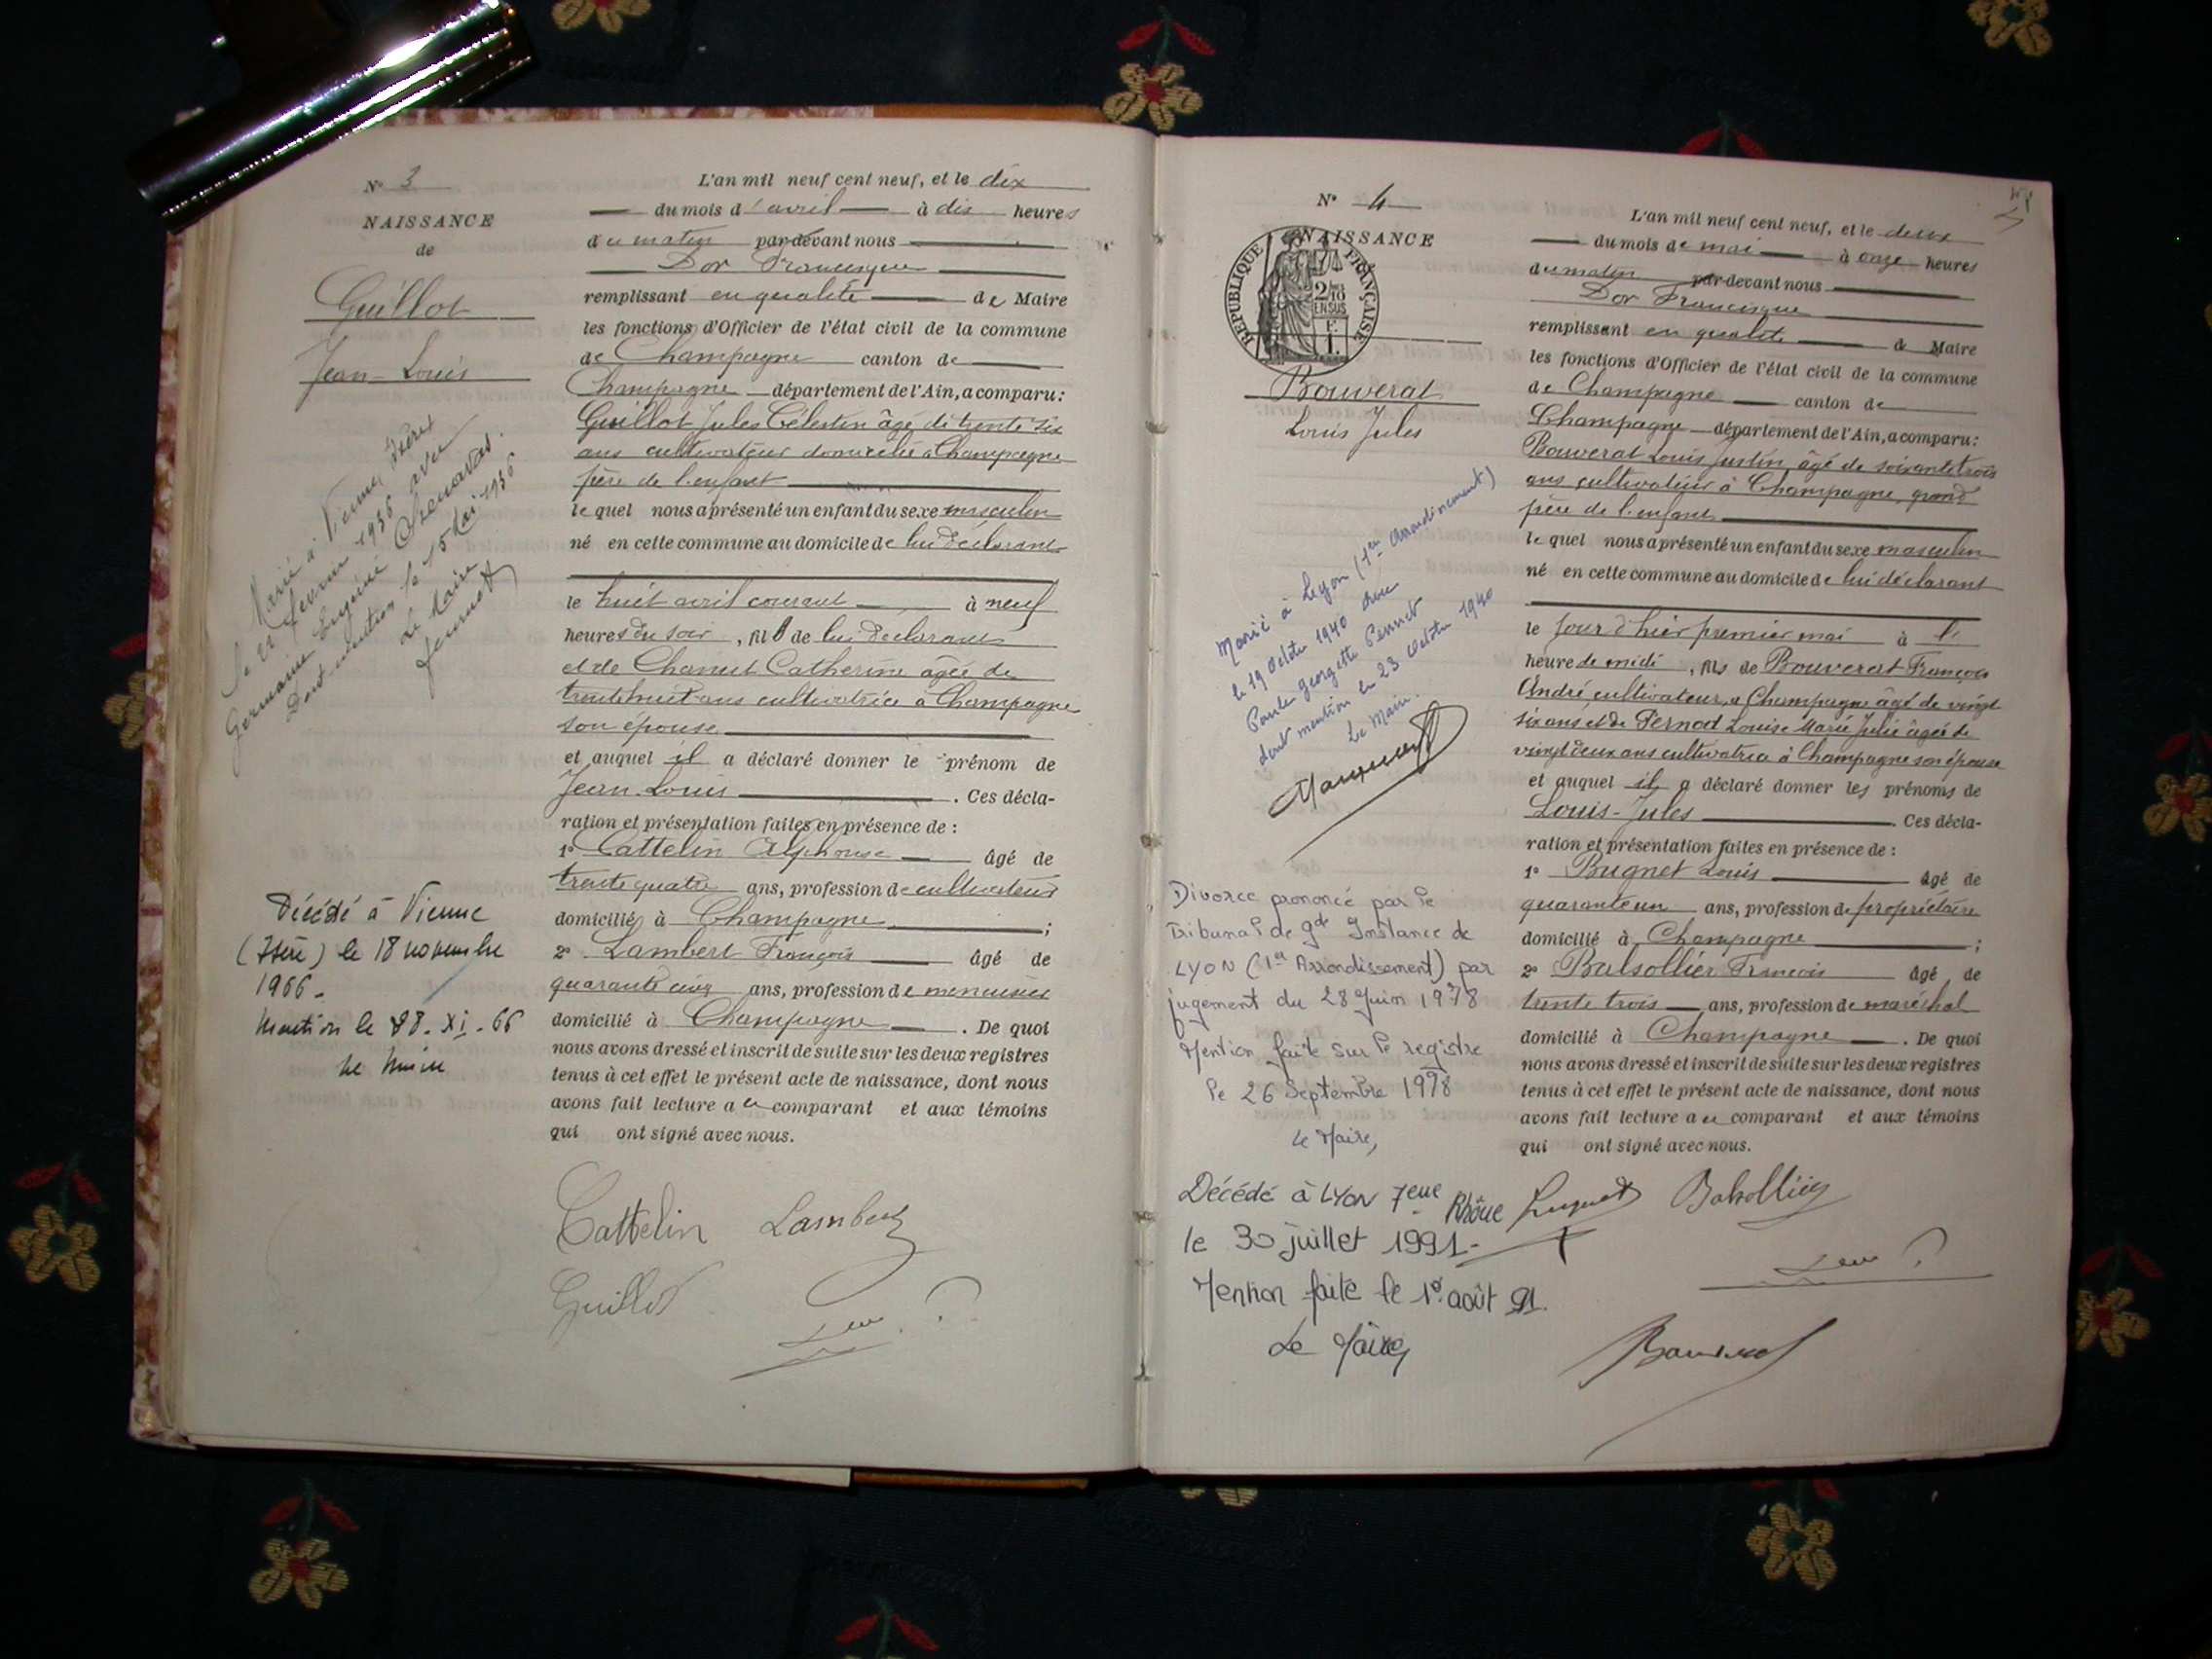 N° 3
NAISSANCE
de
Guillot
Jean-Louis
Marié à Vienne, Isère
le 22 février 1936 avec
Germaine Eugénie
Dont mention le 15 Mai 1936
Le Maire
Décédé à Vienne
(Isère) le 18 novembre
1966.
Mention le 28-XI-66
Le Maire
L'an mil neuf cent neuf, et le dix
du mois d'avril à dix heures
du matin par-devant nous
Dor Francisque
remplissant en qualité de Maire
les fonctions d'Officier de l'état civil de la commune
de Champagne canton de
Champagne département de l'Ain, a comparu:
Guillot Jules Célestin âgé de trente six
ans cultivateur domicilié à Champagne
père de l'enfant
le quel nous a présenté un enfant du sexe masculin
né en cette commune au domicile de lui déclarant
le huit avril courant à neuf
heures du soir, fils de lui déclarant
et de Chanut Catherine âgée de
trente huit ans cultivatrice à Champagne
son épouse
et auquel il a déclaré donner le prénom de
Jean-Louis. Ces décla-
ration et présentation faites en présence de :
1° Cattelin Alphonse âgé de
trente quatre ans, profession de cultivateur
domicilié à Champagne;
2° Lambert François âgé de
quarante cinq ans, profession de menuisier
domicilié à Champagne. De quoi
nous avons dressé et inscrit de suite sur les deux registres
tenus à cet effet le présent acte de naissance, dont nous
avons fait lecture a ce comparant et aux témoins
qui ont signé avec nous.
Cattelin Lambert
Guillot
N° 4
NAISSANCE
REPUBLIQUE FRANÇAISE
2/10
EN SUS
F.
1.
Bouverat
Louis Jules
Marié à Lyon (1er Arrondissement)
le 19 octobre 1940 avec
Paule Georgette Pennet
dont mention le 23 octobre 1940
Le Maire.
Divorce prononcé par le
Tribunal de gde Instance de
LYON (1er Arrondissement) par
jugement du 28 Juin 1978
Mention faite sur le registre
le 26 Septembre 1978
Le Maire,
Décédé à LYON 7eme Rhône
le 30 juillet 1991-
Mention faite le 1° août 91.
Le Maire,
L'an mil neuf cent neuf, et le deux
du mois de mai à onze heures
du matin par-devant nous
Dor Francisque
remplissant en qualité de Maire
les fonctions d'Officier de l'état civil de la commune
de Champagne canton de
Champagne département de l'Ain, a comparu:
Bouverat Louis Justin, âgé de soixante trois
ans cultivateur à Champagne, grand
père de l'enfant
le quel nous a présenté un enfant du sexe masculin
né en cette commune au domicile de lui déclarant
le jour d'hier premier mai à
heure de midi, fils de Bouverat François
André cultivateur à Champagne âgé de vingt
six ans et de Pernod Louise Marie Julie âgée de
vingt deux ans cultivatrice à Champagne son épouse
et auquel il a déclaré donner les prénoms de
Louis-Jules. Ces décla-
ration et présentation faites en présence de :
1° Bugnet Louis âgé de
quarante un ans, profession de propriétaire
domicilié à Champagne;
2° Balsollier François âgé de
trente trois ans, profession de maréchal
domicilié à Champagne. De quoi
nous avons dressé et inscrit de suite sur les deux registres
tenus à cet effet le présent acte de naissance, dont nous
avons fait lecture a ce comparant et aux témoins
qui ont signé avec nous.
Bugnet Balsollier
Bouverat